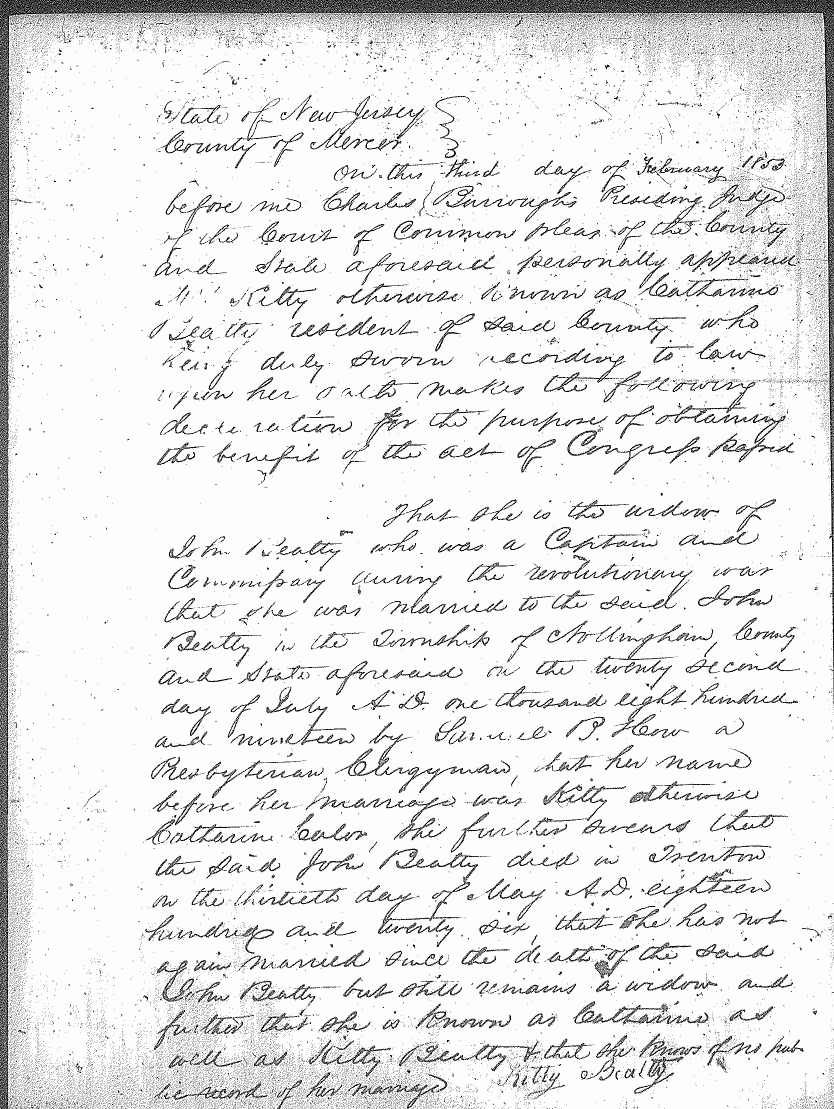 State of New Jersey
County of Mercer
On this third day of February 1853
before me Charles Burroughs Presiding Judge
of the Court of Common pleas of the County
and State aforesaid personally appeared
Mrs Kitty otherwise known as Catharine
Beatty resident of said County who
being duly sworn according to law
upon her oath makes the following
declaration for the purpose of obtaining
the benefit of the act of Congress passed
That she is the widow of
John Beatty who was a Captain and
Commissary during the revolutionary war
that she was married to the said John
Beatty in the Township of Nottingham, County
and State aforesaid on the twenty second
day of July A.D. one thousand eight hundred
and nineteen by Samuel B. How a
Presbyterian Clergyman, that her name
before her marriage was Kitty otherwise
Catharine Calor, she further swears that
the said John Beatty died in Trenton
on the thirtieth day of May A.D. eighteen
hundred and twenty six, that she has not
again married since the death of the said
John Beatty but still remains a widow and
further that she is known as Catharine as
well as Kitty Beatty & that she knows of no pub
lic record of her marriage
Kitty Beatty